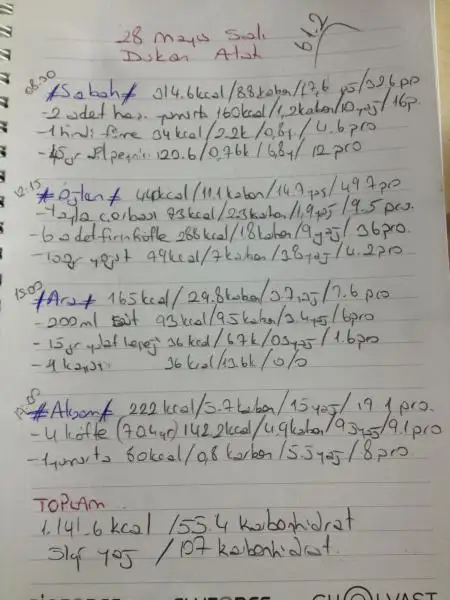 28 mayıs Salı
Dukan Atak
61.2
08.30
#Sabah# 314.6kcal/88karbon/17,6 yağ/32.6 pro
-2 adet haş. yumurta 160kcal/1,2karbon/10yağ/16p.
-1 hindi füme 34kcal/2.2k/0,8y/4.6pro
-45gr peynir: 120.6/0,76k/6,8y/12 pro
12.15
#Öğlen# 440kcal/11.1karbon/14.7yağ/49.7pro
-Yayla çorbası 93kcal/2.3karbon/1,9yağ/9.5 pro.
-6 adet fırın köfte 288kcal/1.8karbon/9yağ/36pro.
yoğurt 49kcal/7karbon/3.8yağ/4.2pro
15.00
#Ara# 165kcal/29.8karbon/3.7yağ/7.6 pro
-200ml süt 93kcal/9.5karbon/3.4yağ/6pro
-15gr yulaf kepeği 36kcal/6.7k/03yağ/1.6pro
-4 kayısı 36kcal/13.6k/0/0
#Akşam# 222kcal/5.7karbon/15yağ/19.1 pro.
-4 köfte (704gr) 142.2kcal/4.9karbon/9.3yağ/9.1pro
-1yumurta 80kcal/0,8 karbon/5.5yağ/8pro.
TOPLAM
1.141.6 kcal /55.4 karbonhidrat
51gr yağ /107 karbonhidrat.